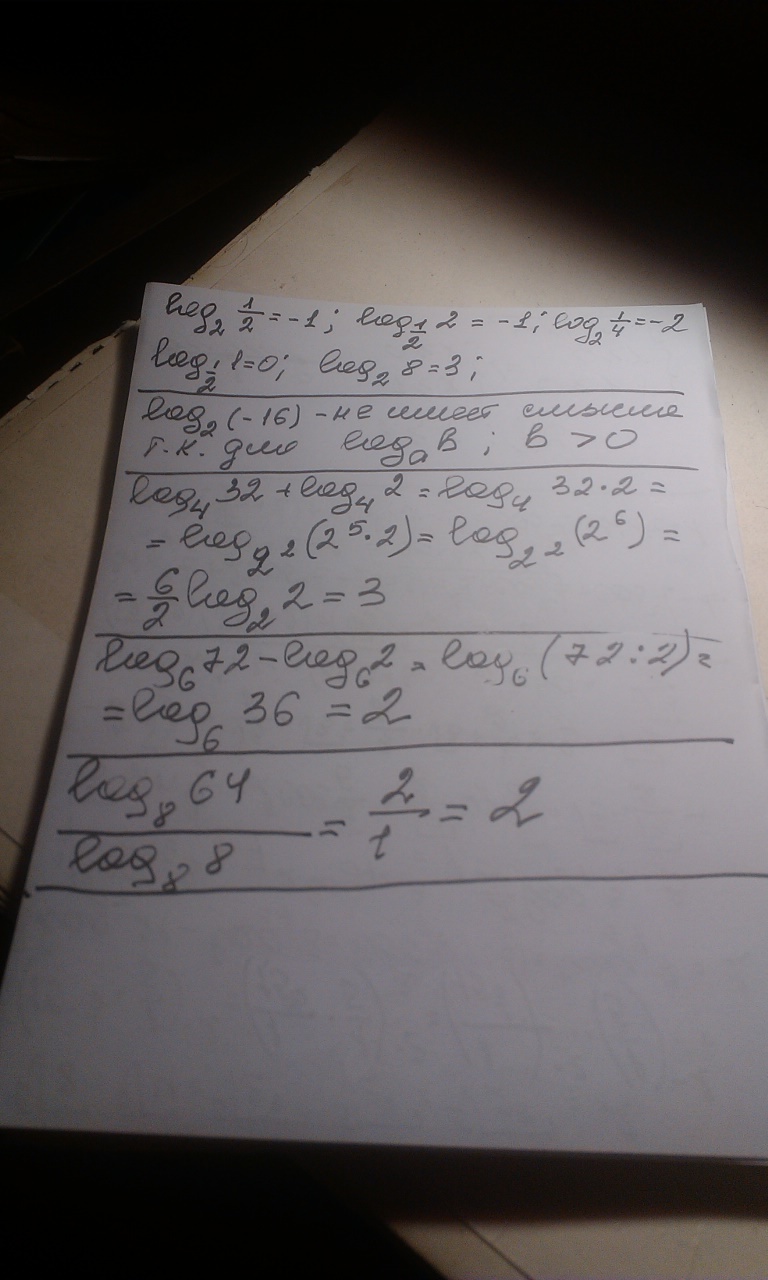 log₂ 1/2 = -1; log_1/2 2 = -1; log₂ 1/4 = -2
log_1/2 1 = 0; log₂ 8 = 3;
log₂ (-16) - не имеет смысла
т.к. для logₐ b; b > 0
log₄ 32 + log₄ 2 = log₄ 32·2 =
= log_2² (2⁵·2) = log_2² (2⁶) =
= 6/2 log₂ 2 = 3
log₆ 72 - log₆ 2 = log₆ (72:2) =
= log₆ 36 = 2
log₈ 64 / log₈ 8 = 2/1 = 2